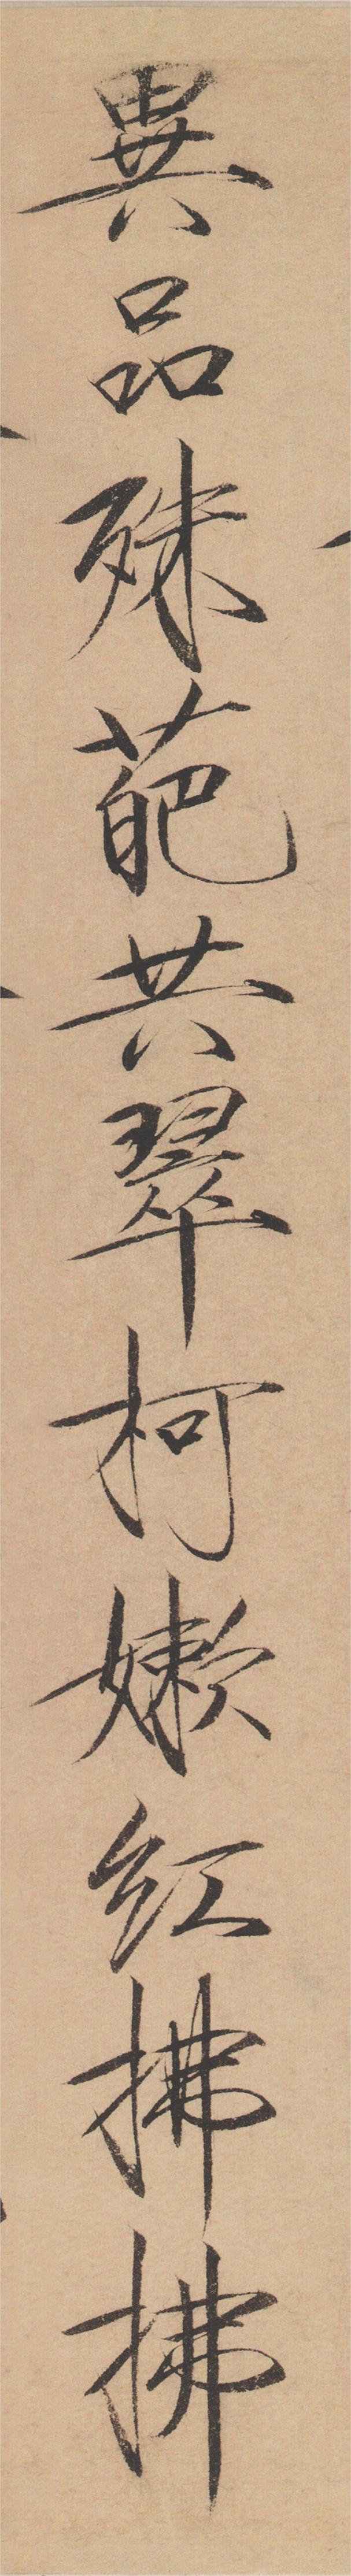 異品殊葩共翠柯嫩紅拂拂